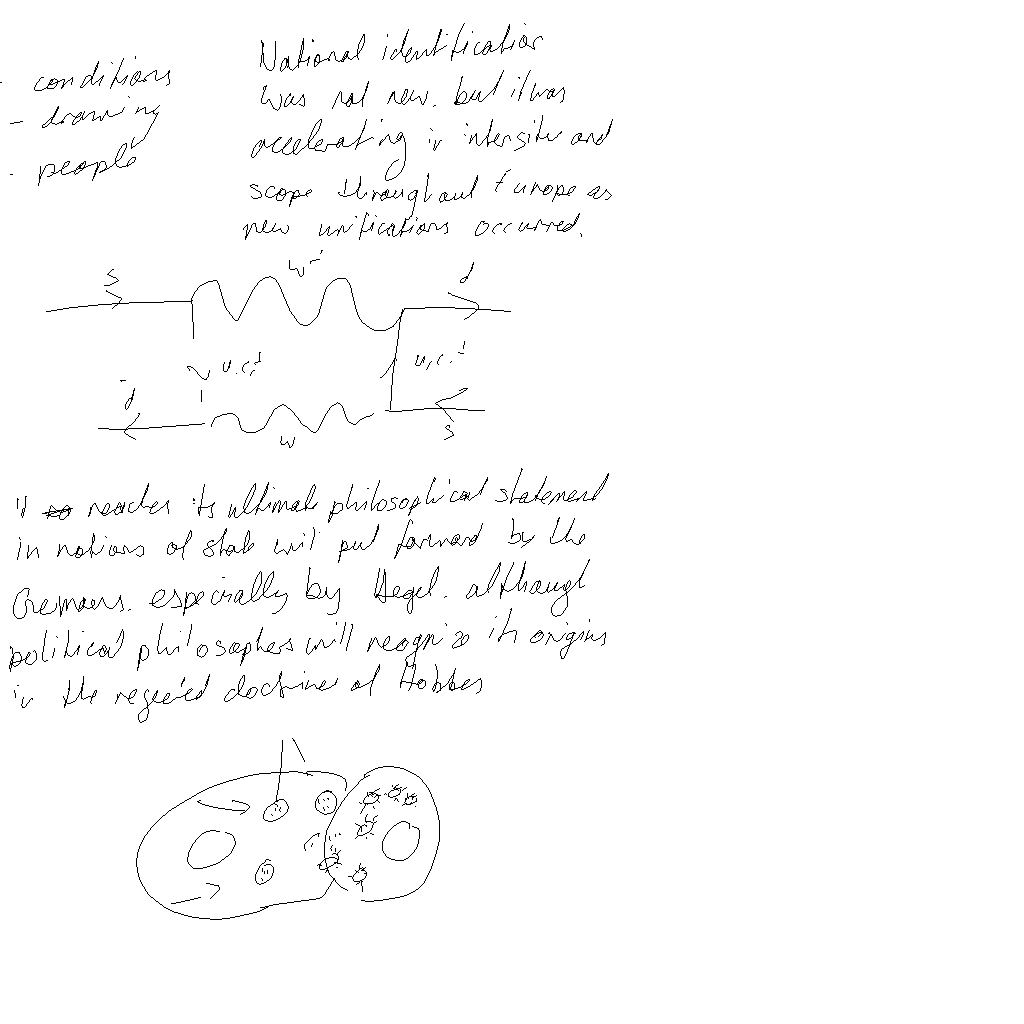 - conditions
- drawing
- people
National identification
was not new, but it was
accelerating in intensity and
scope throughout Europe as
new unifications occurred.
s
W⁻
d
u,c,t
u,c,t
d̄
W
s̄
It reaches its ultimate philosophical statement
in notions of state will put forward by the
Germans, especially by Hegel, although
political philosophers will recognize its origins
in the rejected doctrines of Hobbes